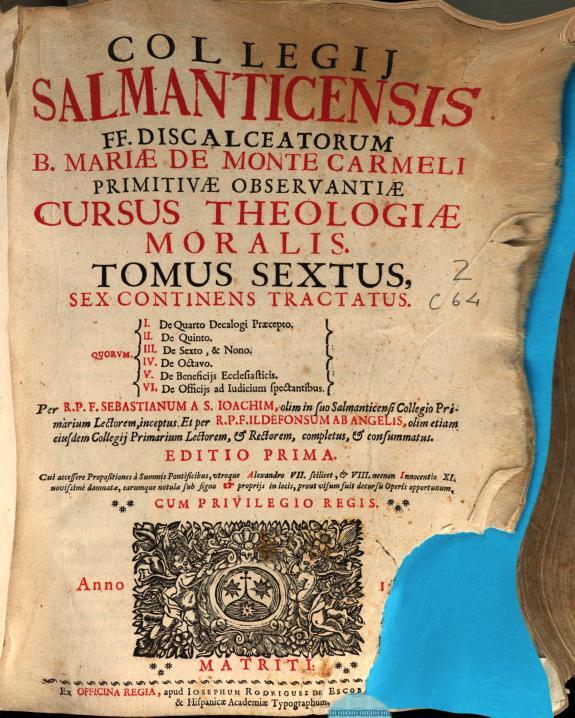 COLLEGIJ
SALMANTICENSIS
FF. DISCALCEATORUM
B. MARIÆ DE MONTE CARMELI
PRIMITIVÆ OBSERVANTIÆ
CURSUS THEOLOGIÆ
MORALIS.
TOMUS SEXTUS,
SEX CONTINENS TRACTATUS.
2
C 64
QUORVM.
I. De Quarto Decalogi Præcepto.
II. De Quinto.
III. De Sexto, & Nono.
IV. De Octavo.
V. De Beneficijs Ecclesiasticis.
VI. De Officijs ad Iudicium spectantibus.
Per R.P.F. SEBASTIANUM A S. IOACHIM, olim in suo Salmanticensi Collegio Pri-
màrium Lectorem, inceptus. Et per R.P.F. ILDEFONSUM AB ANGELIS, olim etiam
eiusdem Collegij Primarium Lectorem, & Rectorem, completus, & consummatus.
EDITIO PRIMA.
Cui accessere Propositiones à Summis Pontificibus, vtroque Alexandro VII. scilicet, & VIII. necnon Innocentio XI.
novissimè damnatæ, earumque notulæ sub signo & proprijs in locis, prout visum fuit decursu Operis opportunum.
CUM PRIVILEGIO REGIS.
Anno
1
MATRITI:
Ex OFFICINA REGIA, apud IOSEPHUM RODRIGUEZ DE ESCOB
& Hispanicæ Academiæ Typographum.